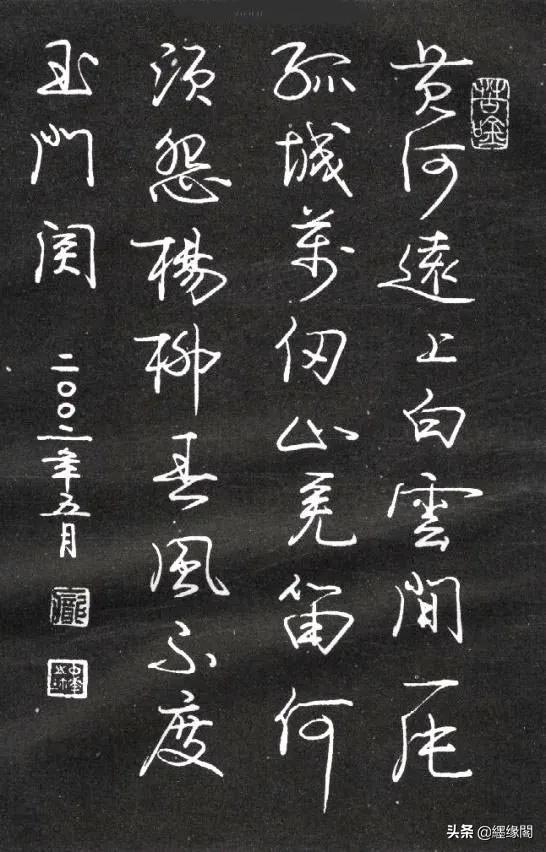 黄河遠上白雲間一片
孤城萬仞山羌笛何
須怨楊柳春風不度
玉門関
二〇〇二年五月
头条